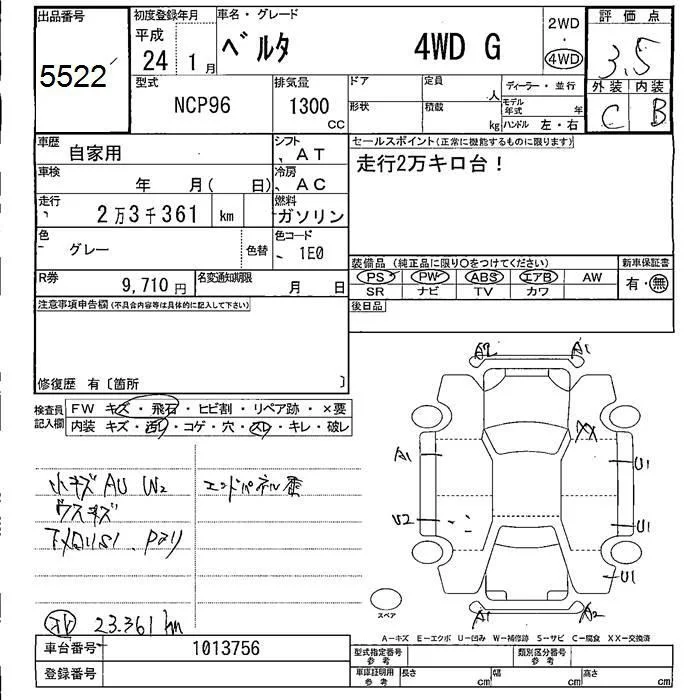 出品番号
5522
初度登録年月
平成
24 年 1 月
車名・グレード
ベルタ 4WD G
2WD
・
4WD
評価点
3.5
外装 内装
C B
型式
NCP96
排気量
1300
CC
ドア
形状
定員
人
積載
kg
ディーラー・並行
モデル年式
年
ハンドル 左・右
車歴
自家用
シフト
AT
セールスポイント(正常に機能するものに限ります)
走行2万キロ台!
車検
年 月( 日)
冷房
AC
走行
2万3千361 km
燃料
ガソリン
色
グレー
色替
色コード
1E0
装備品(純正品に限り○をつけてください)
PS PW ABS エアB AW
SR ナビ TV カワ
新車保証書
有・無
R券
9,710 円
名変通知期限
月 日
後日品
注意事項申告欄(不具合内容等は具体的に記入して下さい)
修復歴 有〔箇所 〕
検査員記入欄
FW キズ・飛石・ヒビ割・リペア跡・×要
内装 キズ・汚レ・コゲ・穴・スレ・キレ・破レ
小キズ AU W2
エンドパネル歪
ウスキズ
23.361 km
A2 A1
XX
A1
U1
U2
U1
U1
A1 A2
スペア
A−キズ E−エクボ U−凹み W−補修跡 S−サビ C−腐食 XX−交換済
車台番号
1013756
登録番号
型式指定番号
参考
類別区分番号
参考
車庫証明用
参考
長さ cm
幅 cm
高さ cm